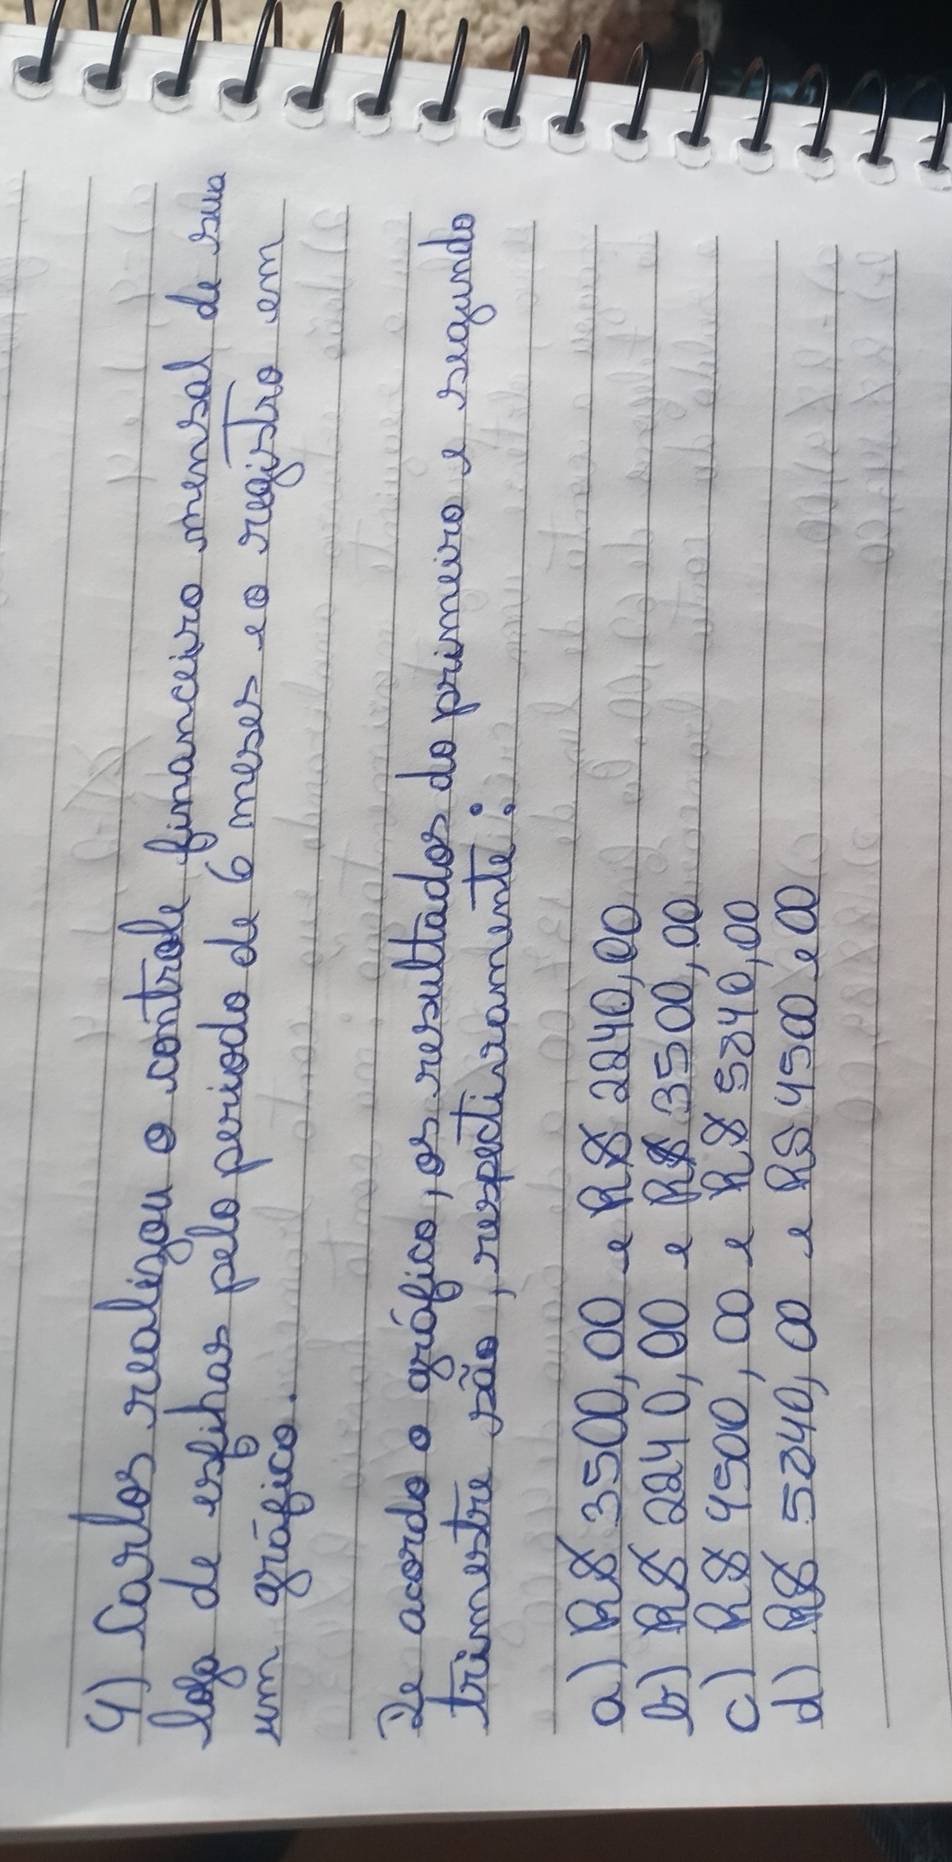 4) Carlos realizou o controle financeiro mensal de sua
loja de esfihas pelo periodo de 6 meses e o registro em
um gráfico.
De acordo o gráfico, os resultados do primeiro e segundo
trimestre são, respectivamente:
a) R$ 3500,00 e R$ 2240,00
b) R$ 2240,00 e R$ 3500,00
c) R$ 4500,00 e R$ 5240,00
d) R$ 5240,00 e R$ 4500,00